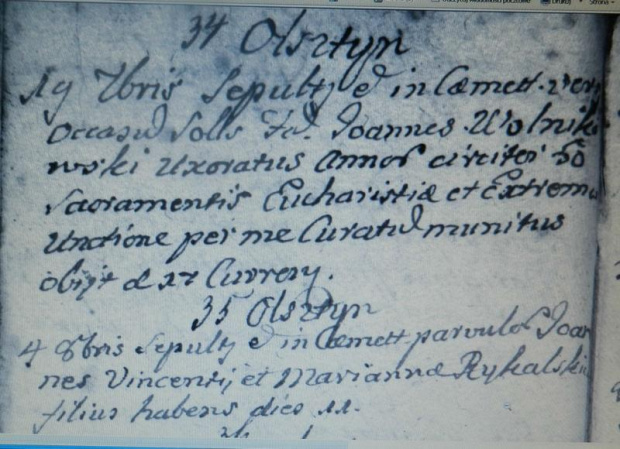 34 Olsztyn
19 7bris Sepultq e in Cæmett. v'er
Occasu Solis Fal. Joannes Wolnik
wski Uxoratus annos circiter 50
Sacramentis Eucharistiæ et Extrema
Unctione per me Curatu munitus
obijt d 17 Curreny.
35 Olsztyn
4 8bris Sepultq e in Cæmett parvulos Joan
nes Vincentij et Mariannæ Rykalski
filius habens dies 11.